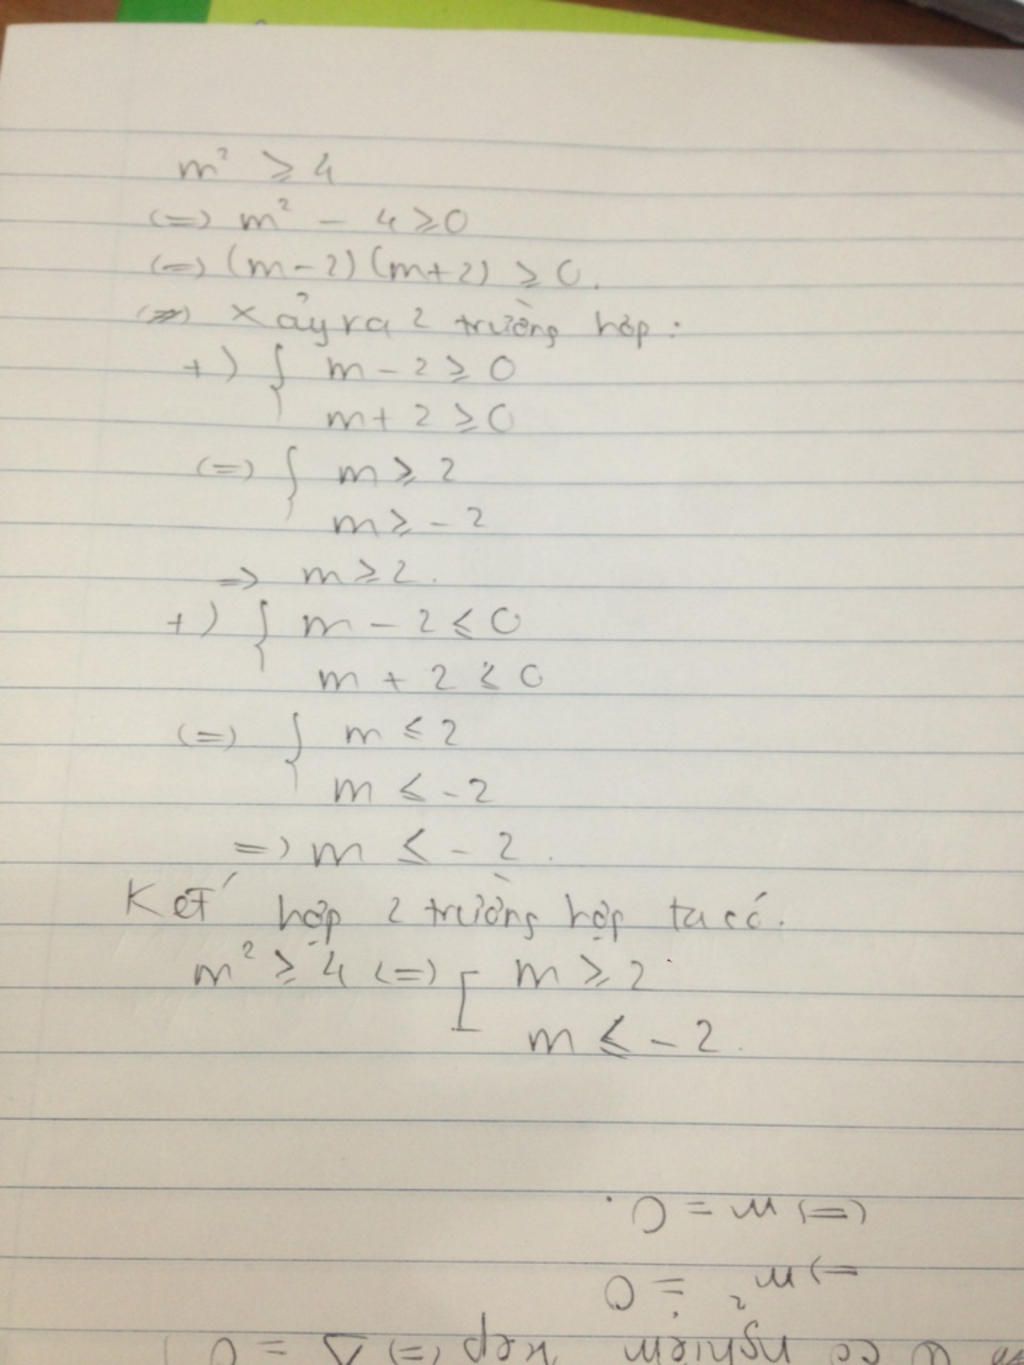 m² ⩾ 4
(=) m² - 4 ⩾ 0
(=) (m-2)(m+2) ⩾ 0.
(=>) Xảy ra 2 trường hợp:
+) { m - 2 ⩾ 0
m + 2 ⩾ 0
(=) { m ⩾ 2
m ⩾ -2
=> m ⩾ 2.
+) { m - 2 ⩽ 0
m + 2 ⩽ 0
(=) { m ⩽ 2
m ⩽ -2
=) m ⩽ -2.
Kết hợp 2 trường hợp ta có.
m² ⩾ 4 (=) [ m ⩾ 2
m ⩽ -2.
(=) m = 0.
=) m² = 0
có nghiệm kép (=) Δ = 0